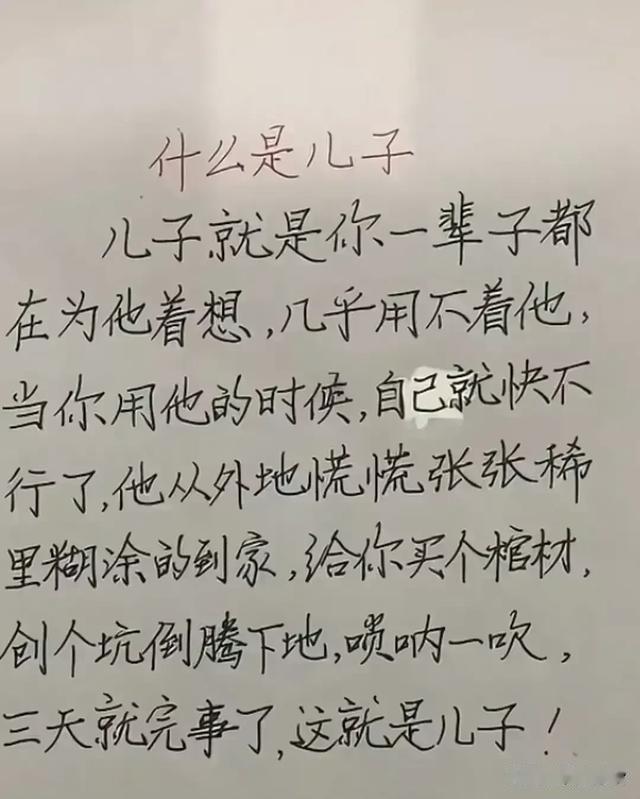 什么是儿子
儿子就是你一辈子都
在为他着想,几乎用不着他,
当你用他的时候,自己就快不
行了,他从外地慌慌张张稀
里糊涂的到家,给你买个棺材,
创个坑倒腾下地,唢呐一吹,
三天就完事了,这就是儿子!